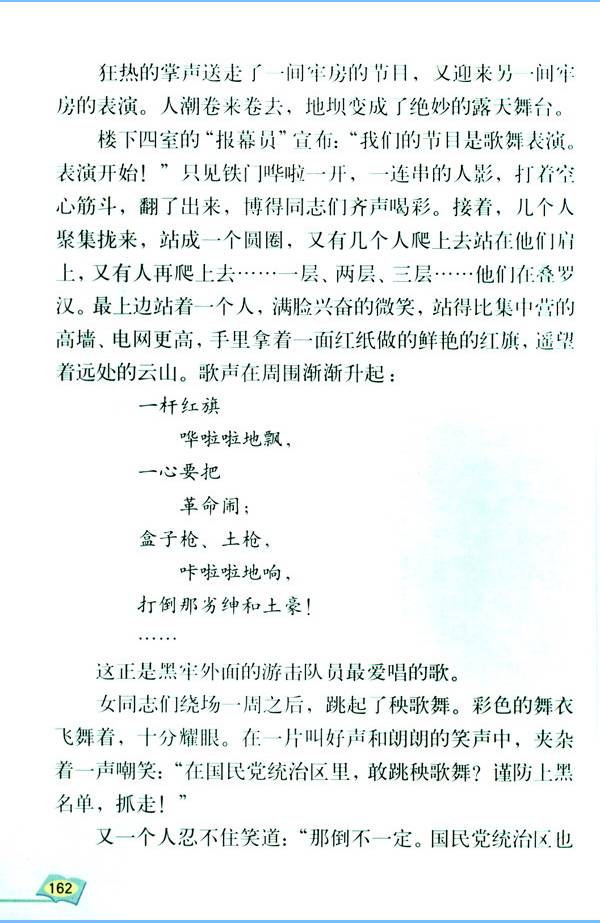 狂热的掌声送走了一间牢房的节目，又迎来另一间牢
房的表演。人潮卷来卷去，地坝变成了绝妙的露天舞台。
楼下四室的“报幕员”宣布：“我们的节目是歌舞表演。
表演开始！”只见铁门哗啦一开，一连串的人影，打着空
心筋斗，翻了出来，博得同志们齐声喝彩。接着，几个人
聚集拢来，站成一个圆圈，又有几个人爬上去站在他们肩
上，又有人再爬上去……一层、两层、三层……他们在叠罗
汉。最上边站着一个人，满脸兴奋的微笑，站得比集中营的
高墙、电网更高，手里拿着一面红纸做的鲜艳的红旗，遥望
着远处的云山。歌声在周围渐渐升起：
一杆红旗
哗啦啦地飘，
一心要把
革命闹；
盒子枪、土枪，
咔啦啦地响，
打倒那劣绅和土豪！
……
这正是黑牢外面的游击队员最爱唱的歌。
女同志们绕场一周之后，跳起了秧歌舞。彩色的舞衣
飞舞着，十分耀眼。在一片叫好声和朗朗的笑声中，夹杂
着一声嘲笑：“在国民党统治区里，敢跳秧歌舞？谨防上黑
名单，抓走！”
又一个人忍不住笑道：“那倒不一定。国民党统治区也
162